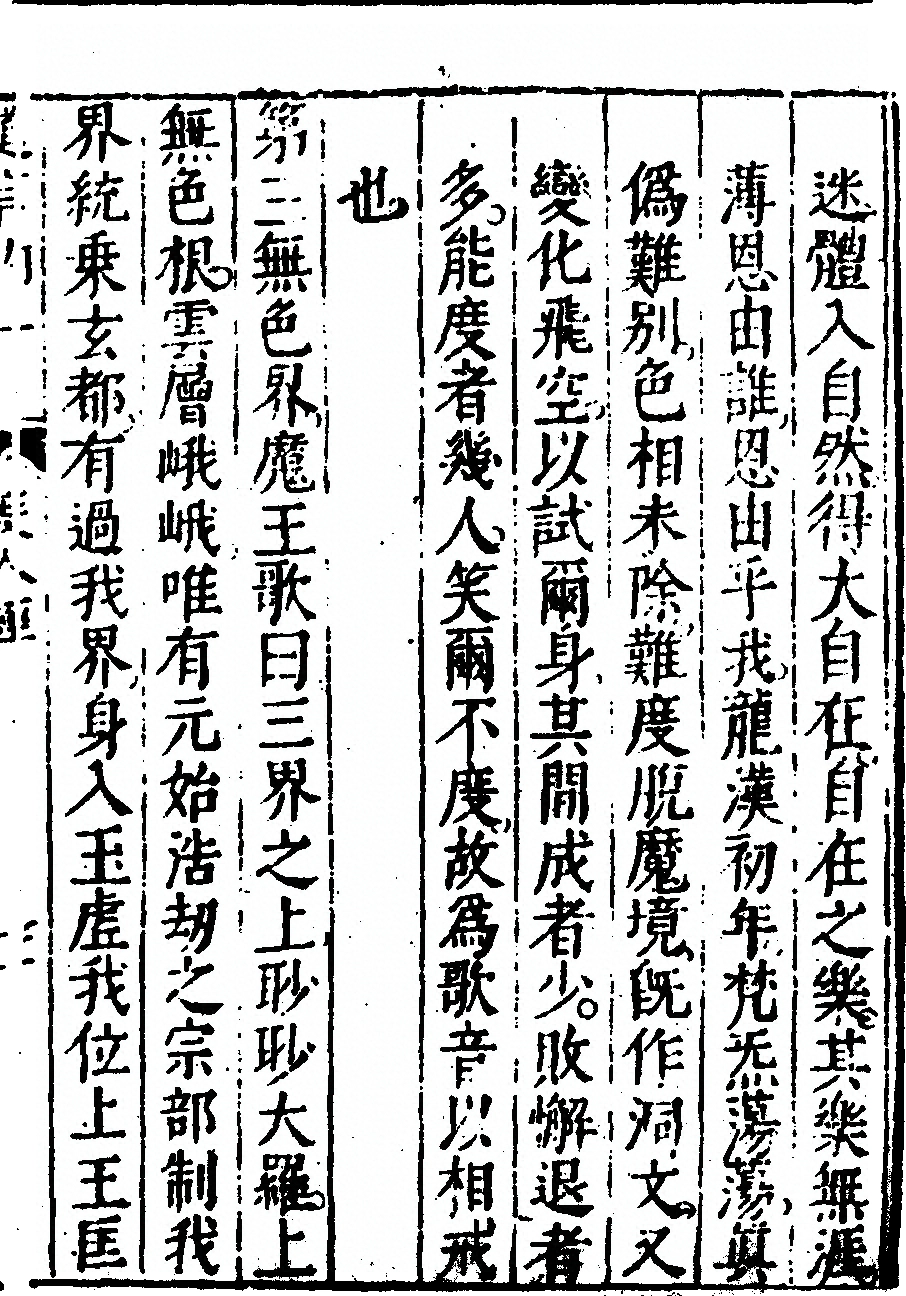 迷體入自然得大自在自在之樂其樂無涯
薄恩由誰恩由乎我龍漢初年梵炁蕩蕩眞
僞難別色相未除難度脫魔境既作洞文又
變化飛空以試爾身其間成者少敗懈退者
多能度者幾人笑爾不度故爲歌音以相戒
也
第三無色界魔王歌曰三界之上眇眇大羅上
無色根雲層峨峨唯有元始浩劫之宗部制我
界統乗玄都有過我界身入玉虛我位上王匡